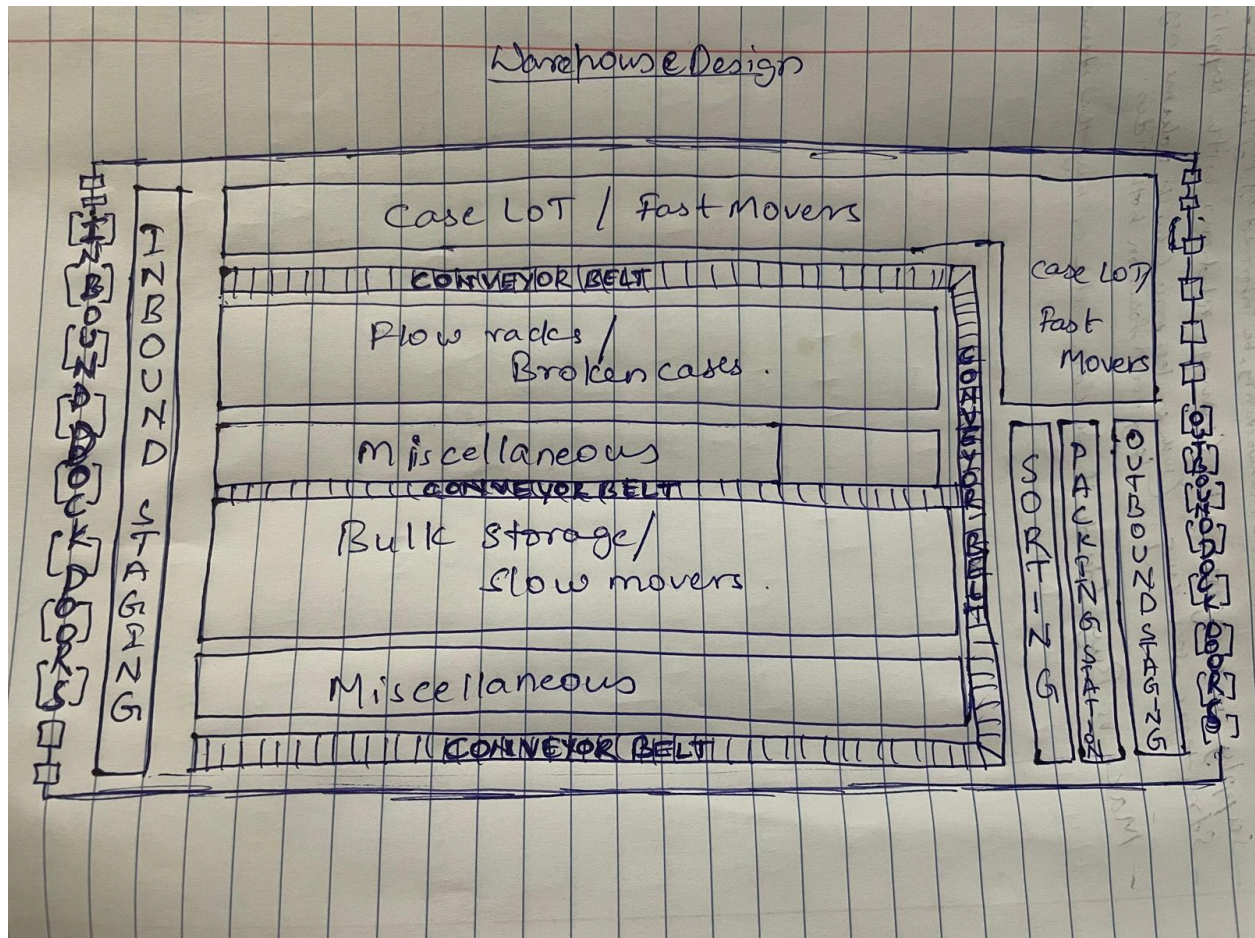 Warehouse Design
INBOUND DOCK DOORS
INBOUND STAGING
Case LOT / Fast Movers
CONVEYOR BELT
Flow racks /
Broken cases.
Miscellaneous
CONVEYOR BELT
Bulk Storage/
Slow movers.
Miscellaneous
CONVEYOR BELT
CONVEYOR BELT
Case LOT/
Fast
Movers
SORTING
PACKING STATION
OUTBOUND STAGING
OUTBOUND DOCK DOORS